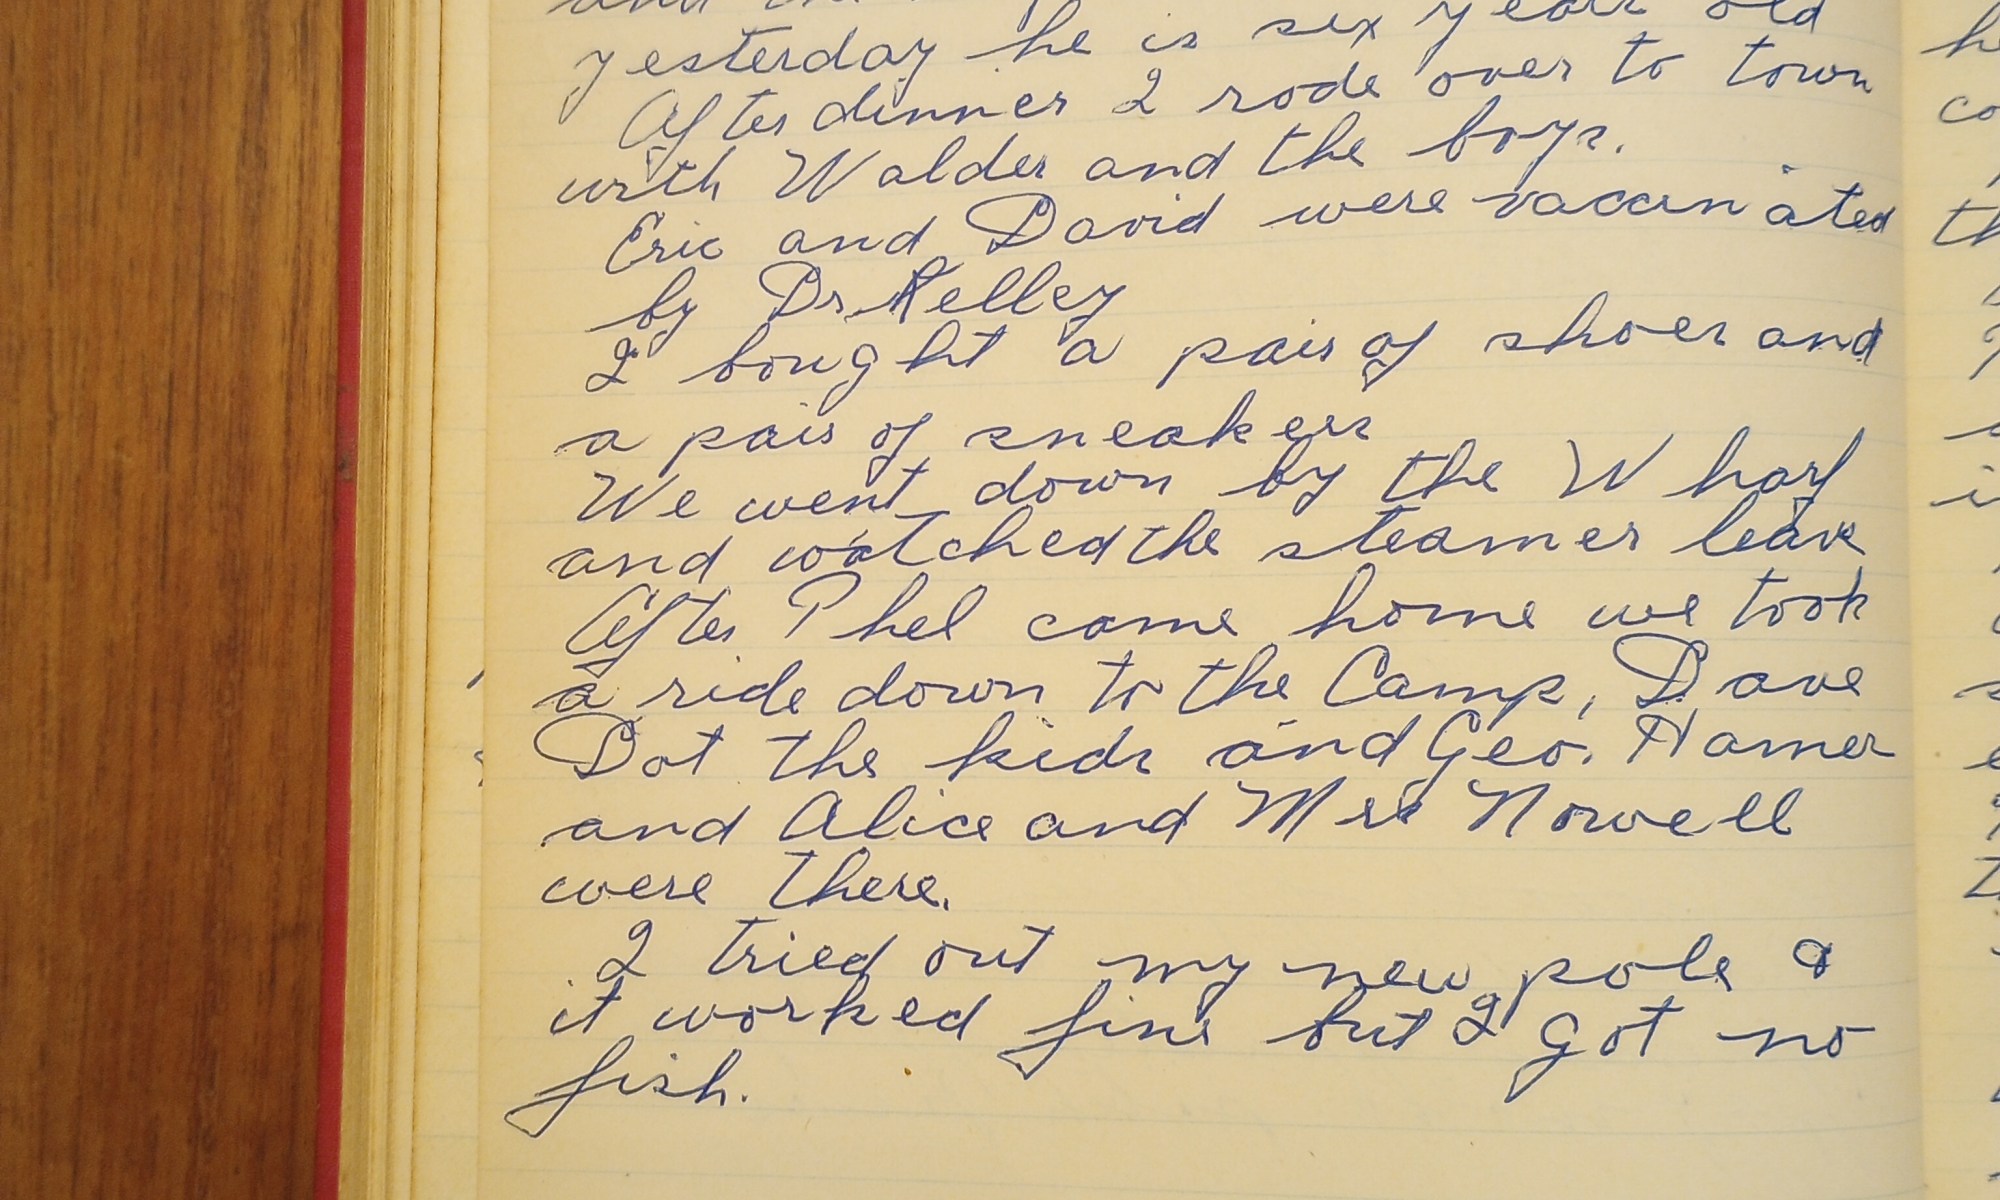 yesterday he is six years old
After dinner I rode over to town
with Walder and the boys.
Eric and David were vaccinated
by Dr. Kelley
I bought a pair of shoes and
a pair of sneakers
We went down by the Wharf
and watched the steamer leave
After Phel came home we took
a ride down to the Camp, Dave
Dot the kids and Geo. Hamer
and Alice and Mrs Nowell
were there.
I tried out my new pole &
it worked fine but I got no
fish.